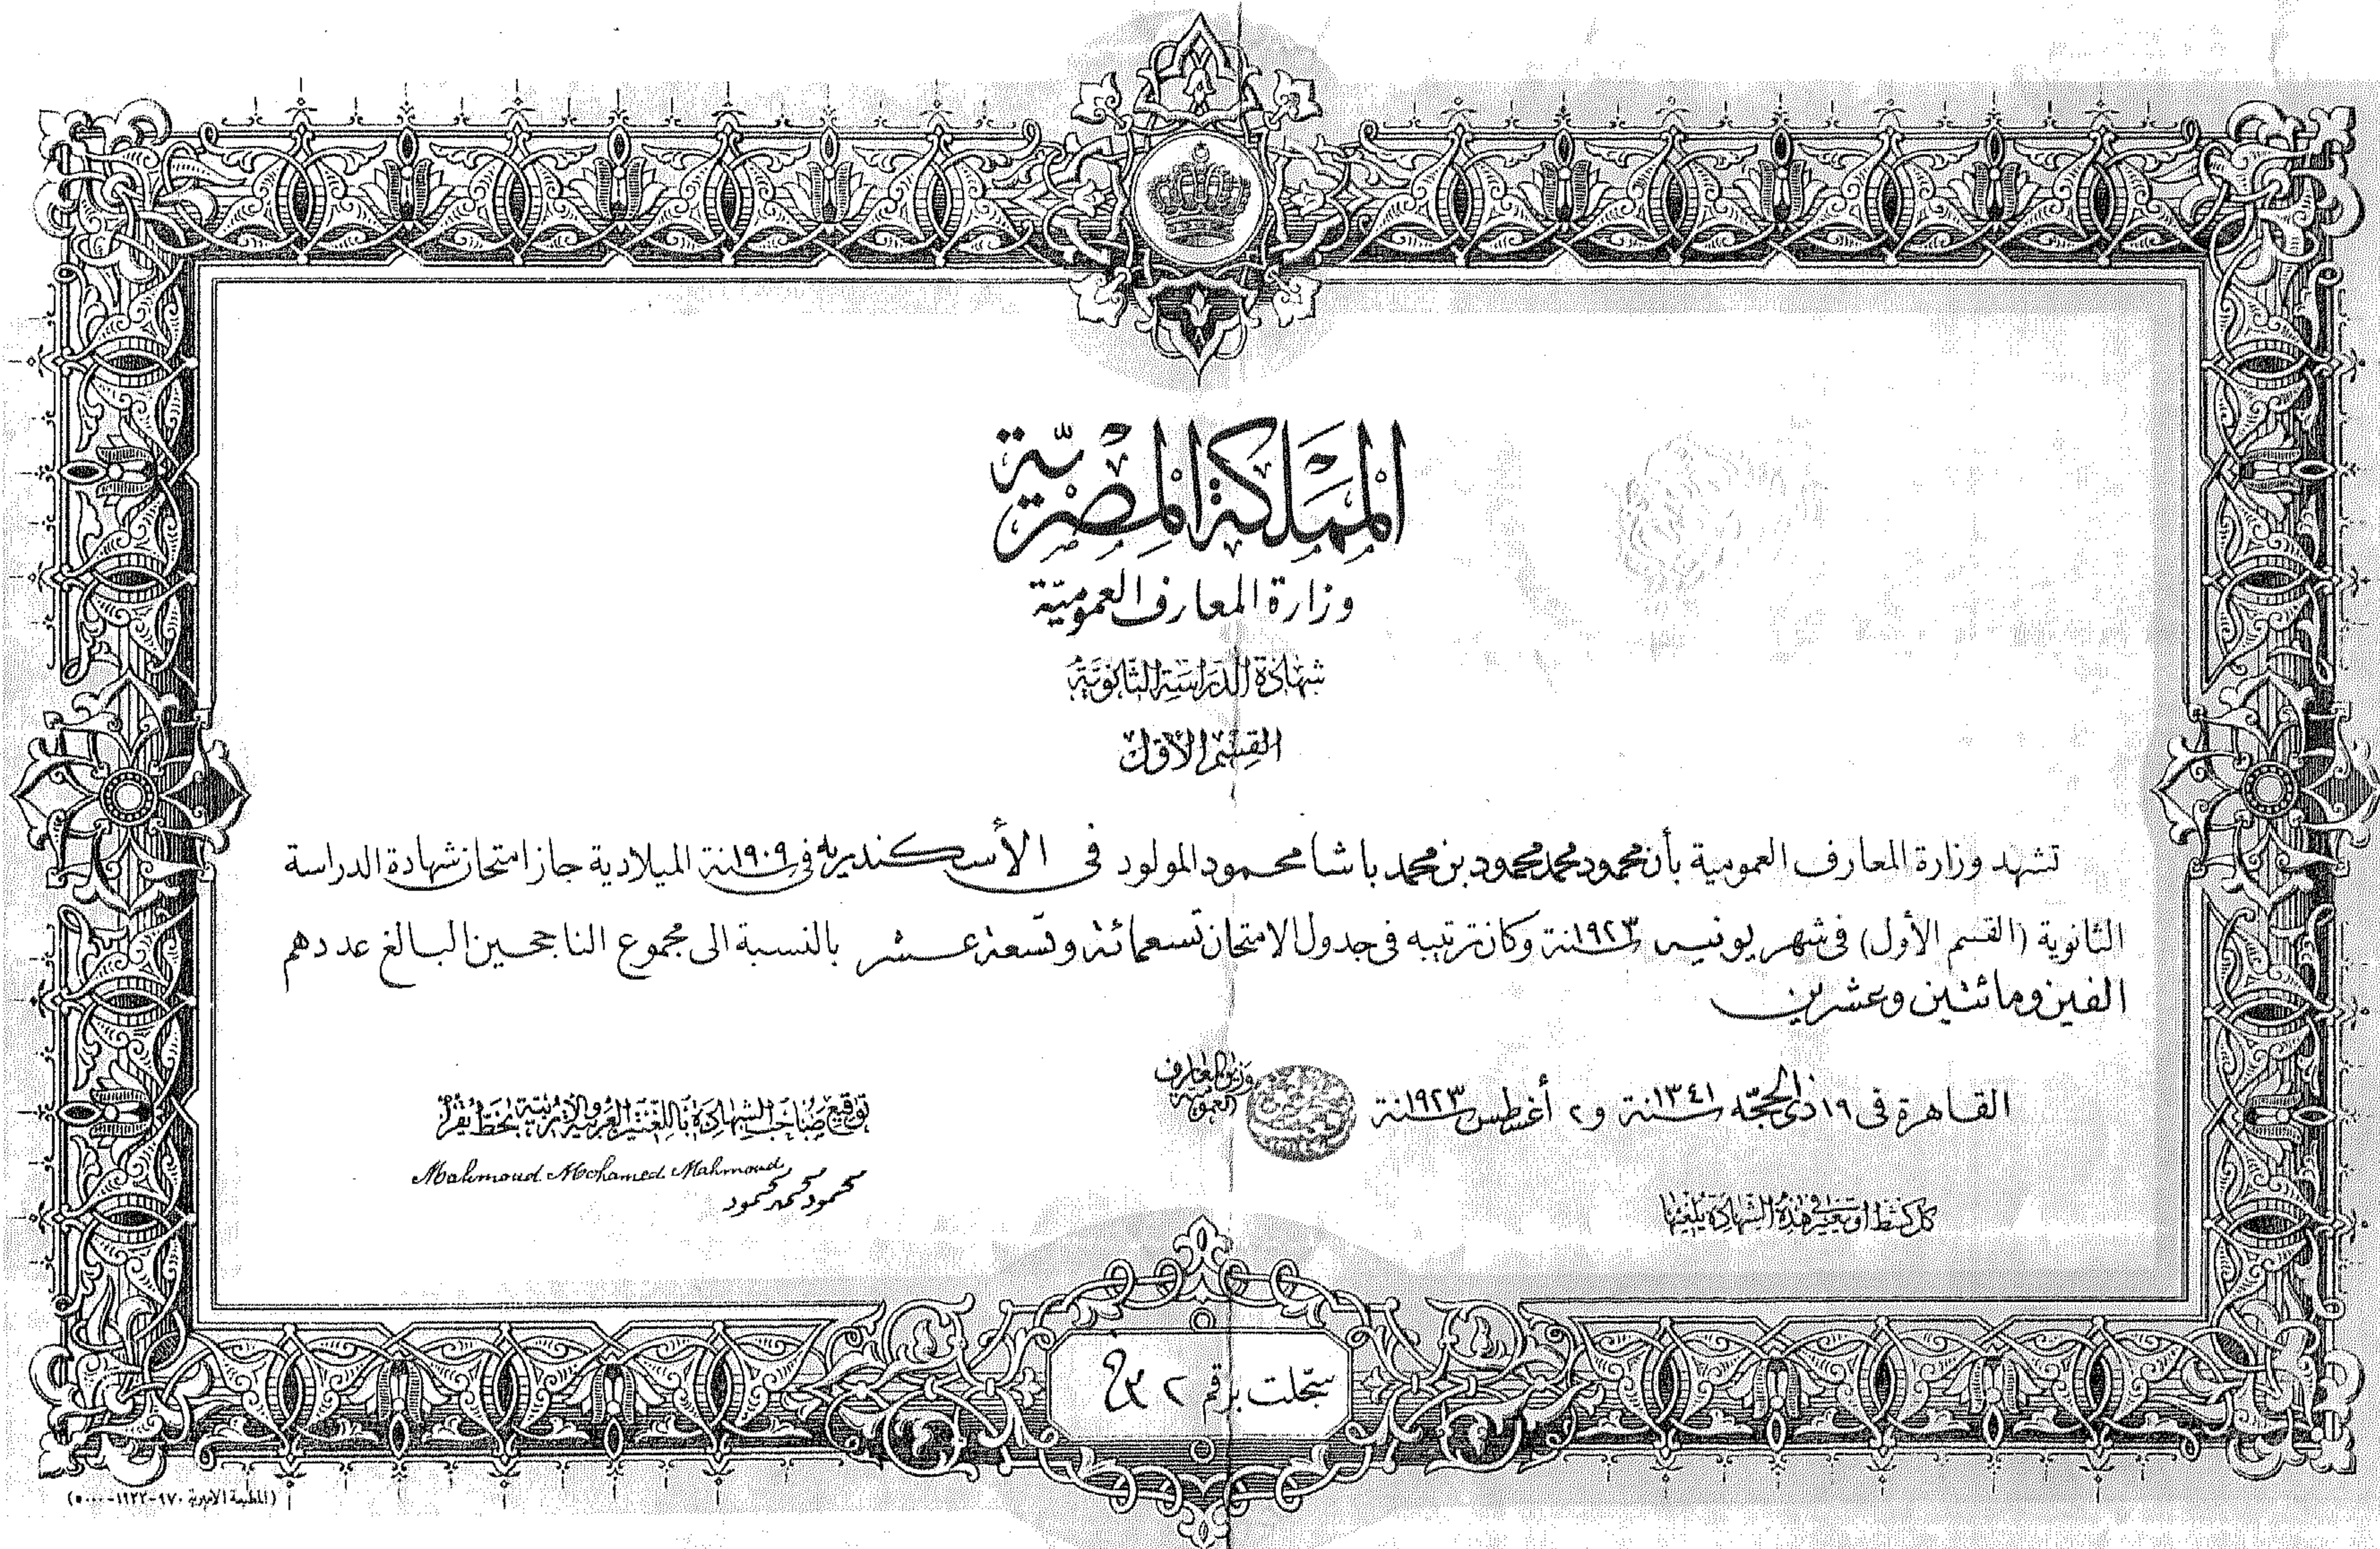 المملكة المصرية
وزارة المعارف العمومية
شهادة الدراسة الثانوية
القسم الأول
تشهد وزارة المعارف العمومية بأن محمود محمد محمود بن محمد باشا محمود المولود في الأسكندرية في سنة ١٩٠٩ الميلادية جاز امتحان شهادة الدراسة
الثانوية (القسم الأول) في شهر يونيه سنة ١٩٢٣ وكان ترتيبه في جدول الامتحان تسعمائة وتسعة عشر بالنسبة الى مجموع الناجحين البالغ عددهم
الفين ومائتين وعشرين
القاهرة في ١٩ ذي الحجة سنة ١٣٤١ و ٢ أغسطس سنة ١٩٢٣
وزير المعارف العمومية
توقيع صاحب الشهادة باللغتين العربية والافرنجية بخط يقرأ
Mahmoud Mohamed Mahmoud
محمود محمد محمود
كل كشط او تغيير في هذه الشهادة يلغيها
سجلت برقم
(المطبعة الاميرية ٩٧٠-١٩٢٢-٥٠٠٠)